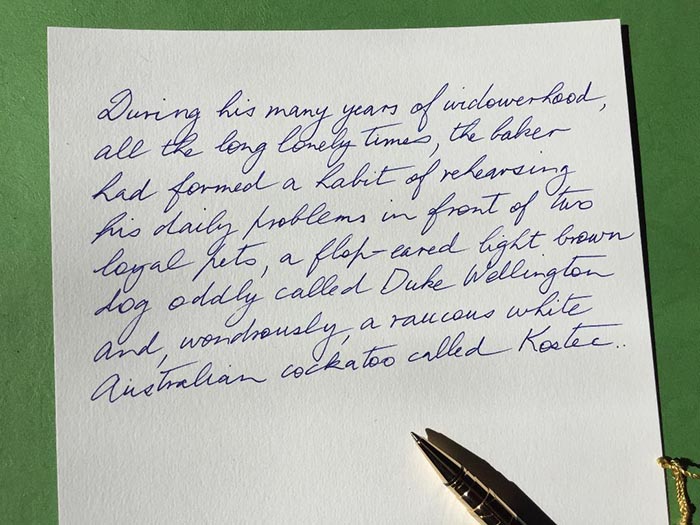 During his many years of widowerhood,
all the long lonely times, the baker
had formed a habit of rehearsing
his daily problems in front of two
loyal pets, a flop-eared light brown
dog oddly called Duke Wellington
and, wondrously, a raucous white
Australian cockatoo called Kostec..